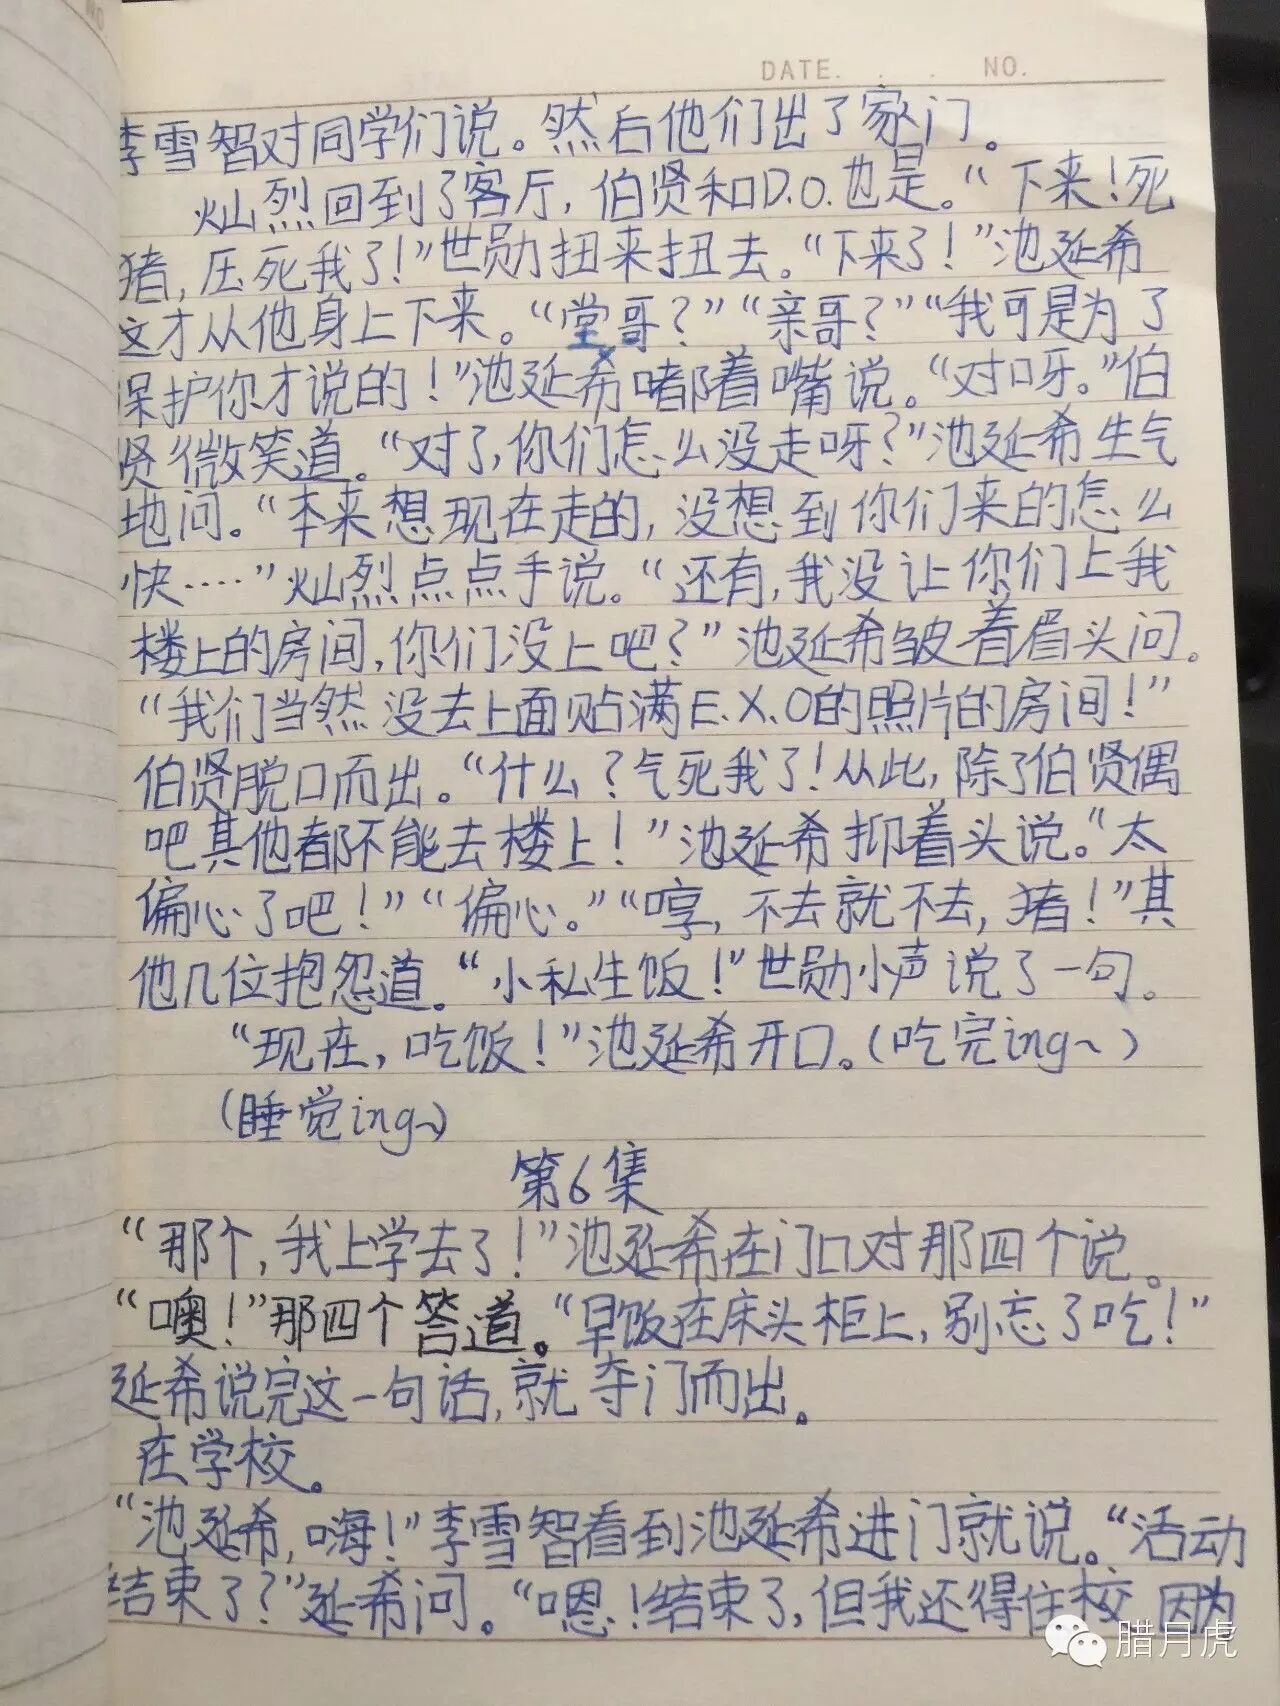 DATE. . . NO.
李雪智对同学们说。然后他们出了家门。
灿烈回到了客厅,伯贤和D.O.也是。“下来!死
猪,压死我了!”世勋扭来扭去。“下来了!”池延希
这才从他身上下来。“堂哥?”“亲哥?”“我可是为了
保护你才说的!”池延希嘟着嘴说。“对呀。”伯
贤微笑道。“对了,你们怎么没走呀?”池延希生气
地问。“本来想现在走的,没想到你们来的怎么
快····”灿烈点点手说。“还有,我没让你们上我
楼上的房间,你们没上吧?”池延希皱着眉头问。
“我们当然没去上面贴满E.X.O的照片的房间!”
伯贤脱口而出。“什么?气死我了!从此,除了伯贤偶
吧其他都不能去楼上!”池延希抑着头说。“太
偏心了吧!”“偏心。”“哼,不去就不去,猪!”其
他几位抱怨道。“小私生饭!”世勋小声说了一句。
“现在,吃饭!”池延希开口。(吃完ing~)
(睡觉ing~)
第6集
“那个,我上学去了!”池延希在门口对那四个说。
“噢!”那四个答道。“早饭在床头柜上,别忘了吃!”
延希说完这一句话,就夺门而出。
在学校。
“池延希,嗨!”李雪智看到池延希进门就说。“活动
结束了?”延希问。“嗯!结束了,但我还得住校,因为
腊月虎